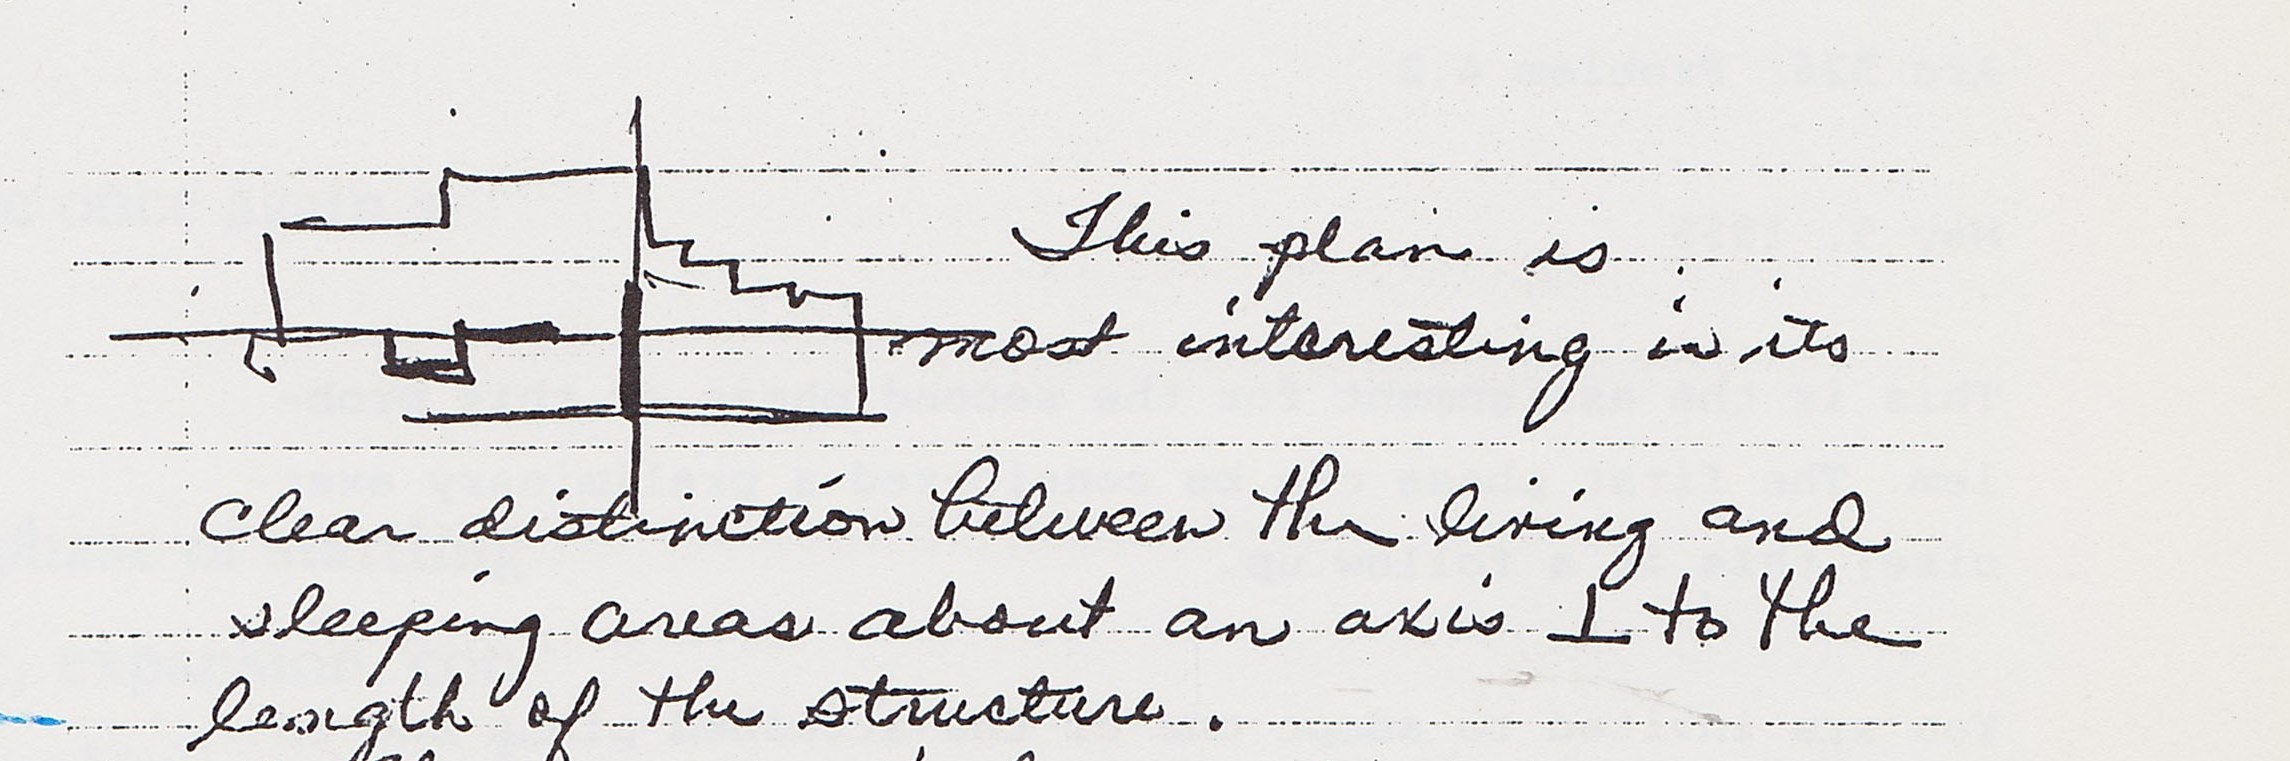 This plan is
most interesting in its
clear distinction between the living and
sleeping areas about an axis ⊥ to the
length of the structure.